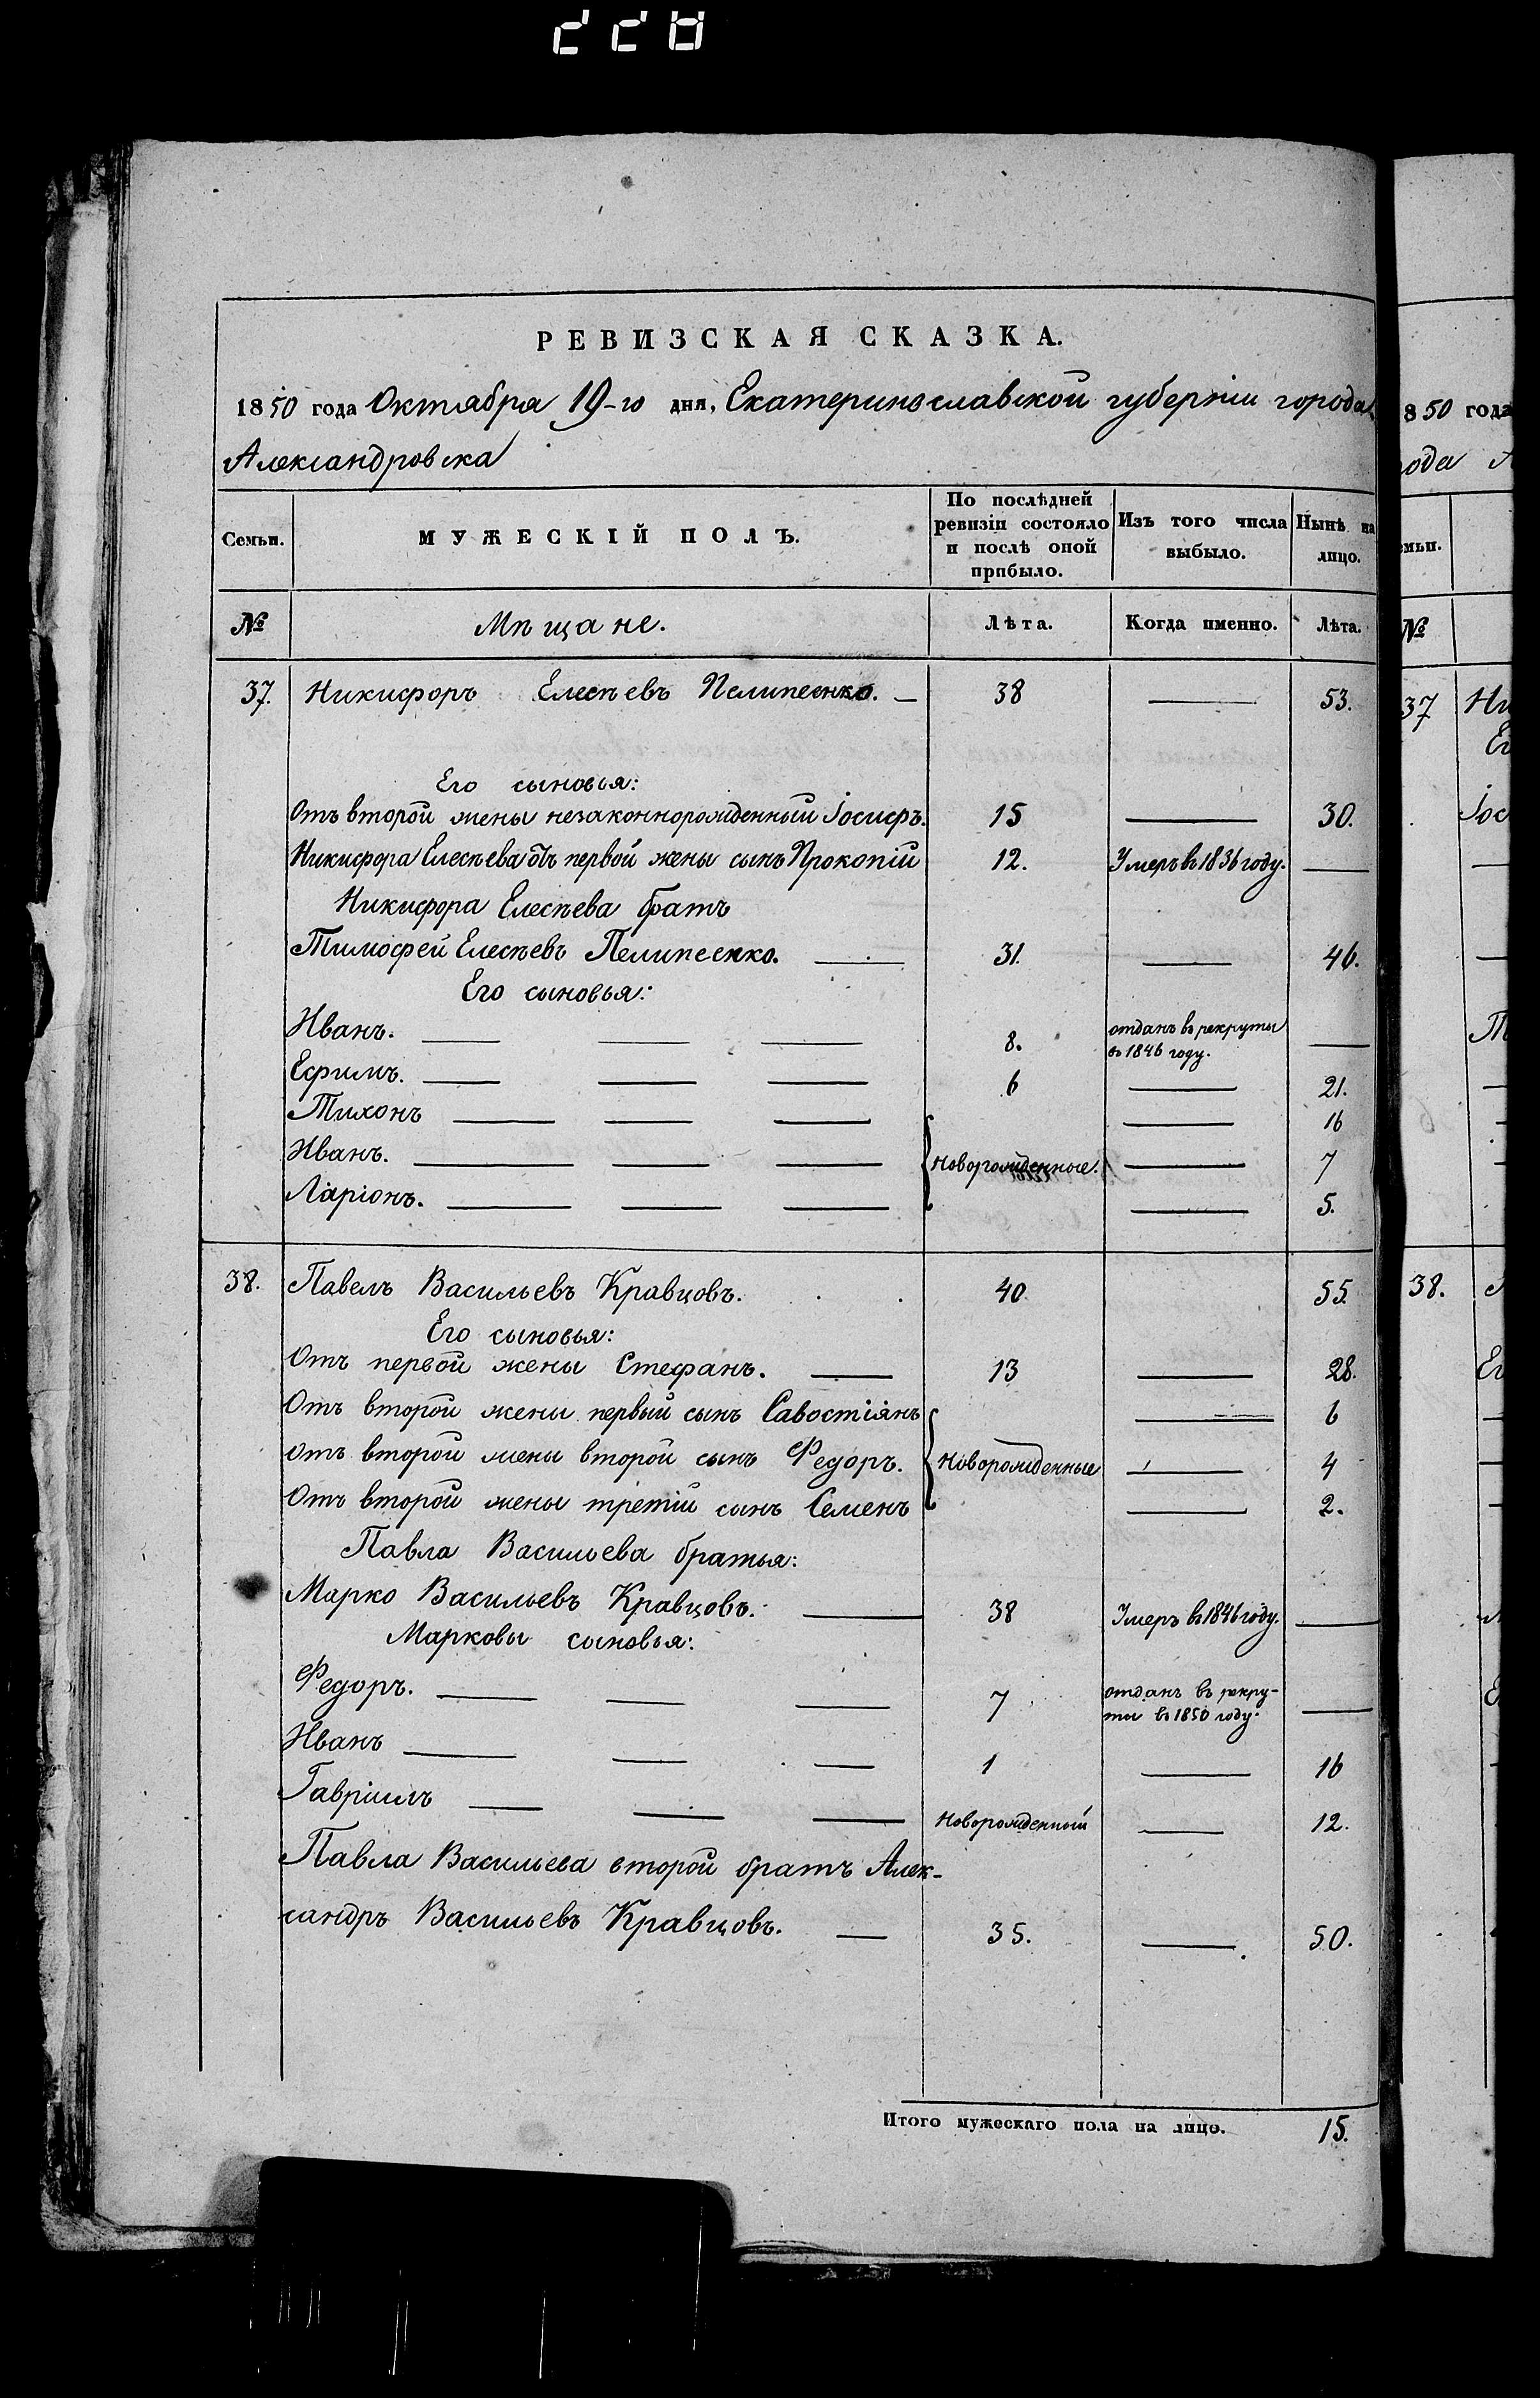 РЕВИЗСКАЯ СКАЗКА.
1850 года Октября 19-го дня, Екатеринославской губерніи города
Александровска
Семьи. МУЖЕСКІЙ ПОЛЪ. По послѣдней ревизіи состояло и послѣ оной прибыло. Изъ того числа выбыло. Нынѣ на лицо.
№ Мѣщане. Лѣта. Когда именно. Лѣта.
37. Никифоръ Елесѣевъ Пелипеенко. — 38 — 53.
Его сыновья:
Отъ второй жены незаконнорожденный Іосифъ. 15 — 30.
Никифора Елесѣева отъ первой жены сынъ Прокопій 12. Умеръ въ 1836 году. —
Никифора Елесѣева братъ
Тимофей Елесѣевъ Пелипеенко. — 31. — 46.
Его сыновья:
Иванъ. — — — 8. отданъ въ рекруты въ 1846 году. —
Ефимъ. — — — 6 — 21.
Тихонъ — — — — 16
Иванъ. — — — Новорожденные. — 7
Ларіонъ. — — — — 5.
38. Павелъ Васильевъ Кравцовъ. 40 55.
Его сыновья:
Отъ первой жены Стефанъ. — 13 — 28.
Отъ второй жены первый сынъ Савостіянъ — 6
Отъ второй жены второй сынъ Федоръ. Новорожденные — 4
Отъ второй жены третій сынъ Семенъ — 2.
Павла Васильева братья:
Марко Васильевъ Кравцовъ. — 38 Умеръ въ 1846 году. —
Марковы сыновья:
Федоръ. — — — 7 отданъ въ рекру-
ты въ 1850 году. —
Иванъ — — — 1 — 16
Гавріилъ — — — Новорожденный — 12.
Павла Васильева второй братъ Алек-
сандръ Васильевъ Кравцовъ. — 35. — 50.
Итого мужескаго пола на лицо. 15.
850 года
№
37
38.